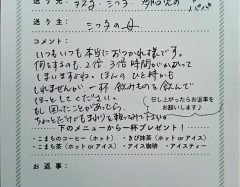 送り主： ミつ子の母
コメント：
いつもいつも本当におつかれ様です。
何をするのも、2倍、3倍時間がかかって
しまいますよね。ほんのひと時かも
しれませんが、一杯飲みものを飲んで
ほっとしてください。
もし困ったことがあったら、
召し上がったらお返事を
お願いします！
下のメニューから一杯プレゼント！
・こまちコーヒー（ホット）・きび抹茶（ホット or アイス）
・こまち茶（ホット or アイス）・アイス珈琲 ・アイスティー
お返事：